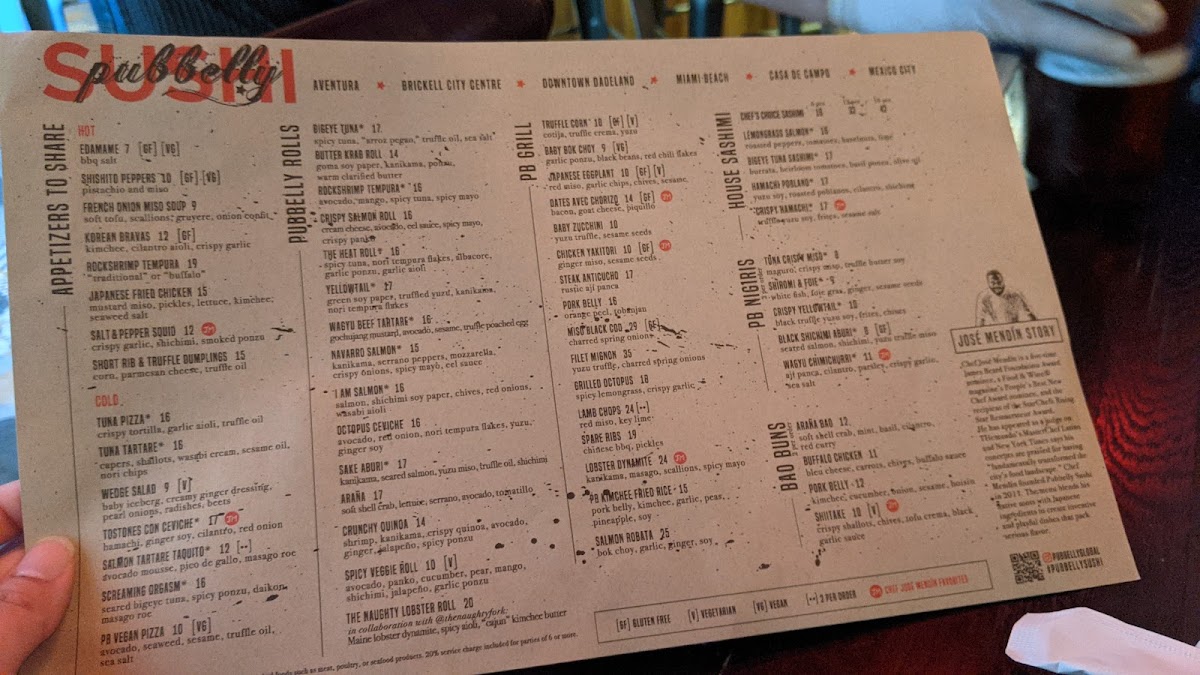 SUSHI
pubbelly
AVENTURA ★ BRICKELL CITY CENTRE ★ DOWNTOWN DADELAND ★ MIAMI BEACH ★ CASA DE CAMPO ★ MEXICO CITY
APPETIZERS TO SHARE
HOT
EDAMAME 7 [GF] [VG]
bbq salt
SHISHITO PEPPERS 10 [GF] [VG]
pistachio and miso
FRENCH ONION MISO SOUP 9
soft tofu, scallions, gruyere, onion confit
KOREAN BRAVAS 12 [GF]
kimchee, cilantro aioli, crispy garlic
ROCKSHRIMP TEMPURA 19
"traditional" or "buffalo"
JAPANESE FRIED CHICKEN 15
mustard miso, pickles, lettuce, kimchee,
seaweed salt
SALT & PEPPER SQUID 12 JM
crispy garlic, shichimi, smoked ponzu
SHORT RIB & TRUFFLE DUMPLINGS 15
corn, parmesan cheese, truffle oil
COLD
TUNA PIZZA* 16
crispy tortilla, garlic aioli, truffle oil
TUNA TARTARE* 16
capers, shallots, wasabi cream, sesame oil,
nori chips
WEDGE SALAD 9 [V]
baby iceberg, creamy ginger dressing,
pearl onions, radishes, beets
TOSTONES CON CEVICHE* 17 JM
hamachi, ginger soy, cilantro, red onion
SALMON TARTARE TAQUITO* 12 [••]
avocado mousse, pico de gallo, masago roe
SCREAMING ORGASM* 16
seared bigeye tuna, spicy ponzu, daikon,
masago roe
PB VEGAN PIZZA 10 [VG]
avocado, seaweed, sesame, truffle oil,
sea salt
PUBBELLY ROLLS
BIGEYE TUNA* 17
spicy tuna, "arroz pegao," truffle oil, sea salt
BUTTER KRAB ROLL 14
goma soy paper, kanikama, ponzu,
warm clarified butter
ROCKSHRIMP TEMPURA* 16
avocado, mango, spicy tuna, spicy mayo
CRISPY SALMON ROLL 16
cream cheese, avocado, eel sauce, spicy mayo,
crispy panko
THE HEAT ROLL* 16
spicy tuna, nori tempura flakes, albacore,
garlic ponzu, garlic aioli
YELLOWTAIL* 17
green soy paper, truffled yuzu, kanikama,
nori tempura flakes
WAGYU BEEF TARTARE* 16
gochujang mustard, avocado, sesame, truffle poached egg
NAVARRO SALMON* 15
kanikama, serrano peppers, mozzarella,
crispy onions, spicy mayo, eel sauce
I AM SALMON* 16
salmon, shichimi soy paper, chives, red onions,
wasabi aioli
OCTOPUS CEVICHE 16
avocado, red onion, nori tempura flakes, yuzu,
ginger soy
SAKE ABURI* 17
kanikama, seared salmon, yuzu miso, truffle oil, shichimi
ARAÑA 17
soft shell crab, lettuce, serrano, avocado, tomatillo
CRUNCHY QUINOA 14
shrimp, kanikama, crispy quinoa, avocado,
ginger, jalapeño, spicy ponzu
SPICY VEGGIE ROLL 10 [V]
avocado, panko, cucumber, pear, mango,
shichimi, jalapeño, garlic ponzu
THE NAUGHTY LOBSTER ROLL 20
in collaboration with @thenaughtyfork:
Maine lobster dynamite, spicy aioli, "cajun" kimchee butter
PB GRILL
TRUFFLE CORN* 10 [GF] [V]
cotija, truffle crema, yuzu
BABY BOK CHOY 9 [VG]
garlic ponzu, black beans, red chili flakes
JAPANESE EGGPLANT 10 [GF] [V]
red miso, garlic chips, chives, sesame
DATES AVEC CHORIZO 14 [GF] JM
bacon, goat cheese, piquillo
BABY ZUCCHINI 10
yuzu truffle, sesame seeds
CHICKEN YAKITORI 10 [GF] JM
ginger miso, sesame seeds
STEAK ANTICUCHO 17
rustic aji panca
PORK BELLY 16
orange peel, tobanjan
MISO BLACK COD 29 [GF]
charred spring onion
FILET MIGNON 35
yuzu truffle, charred spring onions
GRILLED OCTOPUS 18
spicy lemongrass, crispy garlic
LAMB CHOPS 24 [••]
red miso, key lime
SPARE RIBS 19
chinese bbq, pickles
LOBSTER DYNAMITE 24 JM
kanikama, masago, scallions, spicy mayo
PB KIMCHEE FRIED RICE 15
pork belly, kimchee, garlic, peas,
pineapple, soy
SALMON ROBATA 25
bok choy, garlic, ginger, soy
HOUSE SASHIMI
CHEF'S CHOICE SASHIMI
LEMONGRASS SALMON* 16
roasted peppers, tomatoes, hazelnuts, lime
BIGEYE TUNA SASHIMI* 17
burrata, heirloom tomatoes, basil ponzu, olive oil
HAMACHI POBLANO* 17
yuzu soy, roasted poblanos, cilantro, shichimi
CRISPY HAMACHI* 17 JM
truffle yuzu soy, fries, sesame salt
PB NIGIRIS
2 per order
TUNA CRISPY MISO* 8
maguro, crispy miso, truffle butter soy
SHIROMI & FOIE*
white fish, foie gras, ginger, sesame seeds
CRISPY YELLOWTAIL* 10
black truffle yuzu soy, fries, chives
BLACK SHICHIMI ABURI* 8 [GF]
seared salmon, shichimi, yuzu truffle miso
WAGYU CHIMICHURRI* 11 JM
aji panca, cilantro, parsley, crispy garlic,
sea salt
BAO BUNS
2 per order
ARAÑA BAO 12
soft shell crab, mint, basil, cilantro,
red curry
BUFFALO CHICKEN 11
bleu cheese, carrots, chives, buffalo sauce
PORK BELLY 12
kimchee, cucumber, onion, sesame, hoisin
SHIITAKE 10 [V] JM
crispy shallots, chives, tofu crema, black
garlic sauce
JOSÉ MENDÍN STORY
Chef José Mendín is a five-time
James Beard Foundation Award
nominee, a Food & Wine
magazine's People's Best New
Chef Award nominee, and the
recipient of the StarChefs Rising
Star Restaurateur Award.
He has appeared as a judge on
Telemundo's MasterChef Latino
and New York Times says his
concepts are praised for having
"fundamentally transformed the
city's food landscape." Chef
Mendín founded Pubbelly Sushi
in 2011. The menu blends his
native roots with Japanese
ingredients to create inventive
and playful dishes that pack
serious flavor.
@PUBBELLYGLOBAL
#PUBBELLYSUSHI
[GF] GLUTEN FREE [V] VEGETARIAN [VG] VEGAN [••] 3 PER ORDER JM CHEF JOSÉ MENDÍN FAVORITES
foods such as meat, poultry, or seafood products. 20% service charge included for parties of 6 or more.